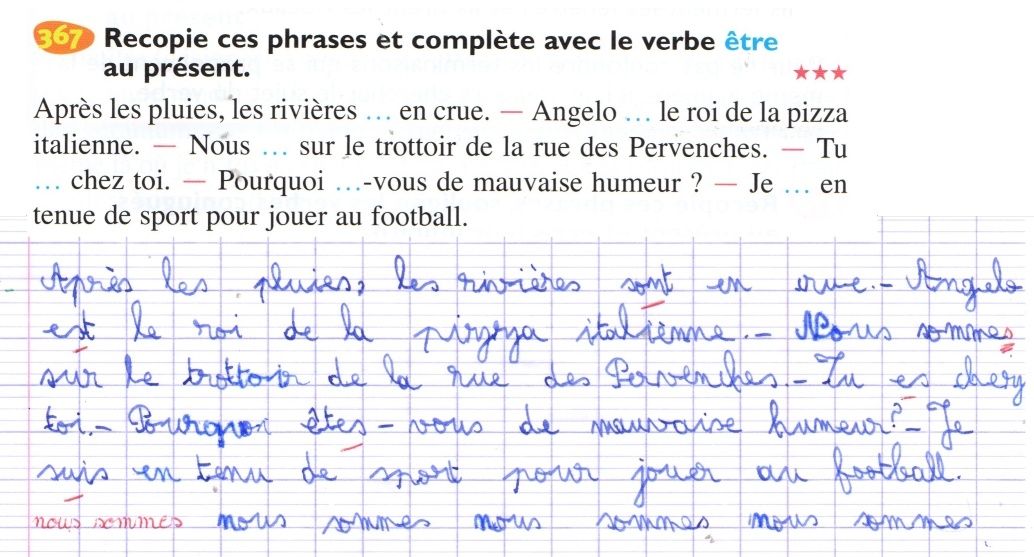 367 Recopie ces phrases et complète avec le verbe être
au présent.
★★★
Après les pluies, les rivières ... en crue. — Angelo ... le roi de la pizza
italienne. — Nous ... sur le trottoir de la rue des Pervenches. — Tu
... chez toi. — Pourquoi ...-vous de mauvaise humeur ? — Je ... en
tenue de sport pour jouer au football.
Après les pluies, les rivières sont en crue. - Angelo
est le roi de la pizza italienne. - Nous sommes
sur le trottoir de la rue des Pervenches. - Tu es chez
toi. - Pourquoi êtes-vous de mauvaise humeur ? - Je
suis en tenu de sport pour jouer au football.
nous sommes nous sommes nous sommes nous sommes